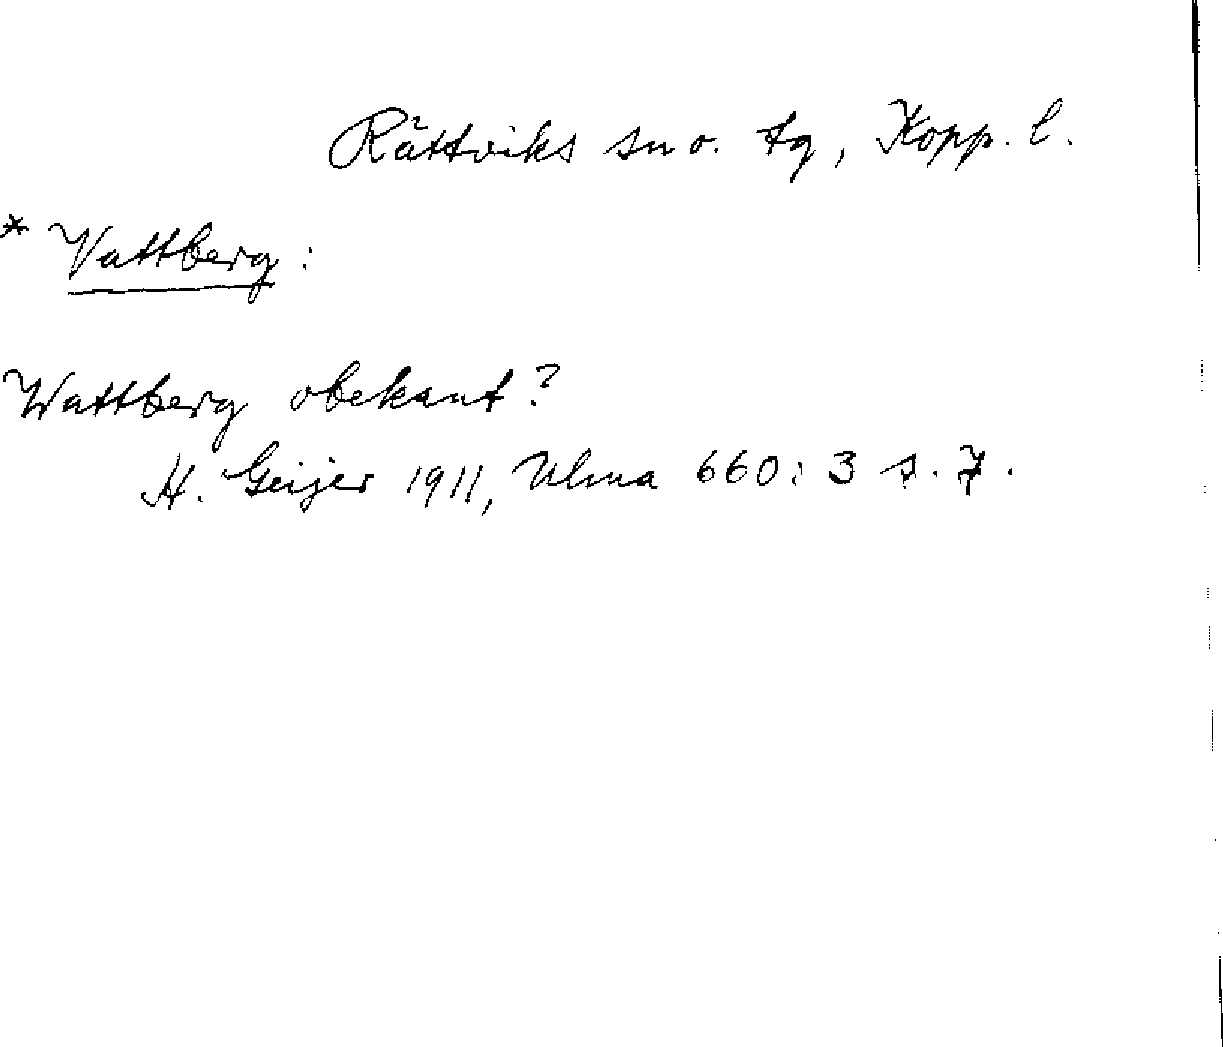 Rättviks sn o. tg, Kopp. l.
* Vattberg :
Wattberg obekant?
H. Geijer 1911, Ulma 660: 3 s. 7.